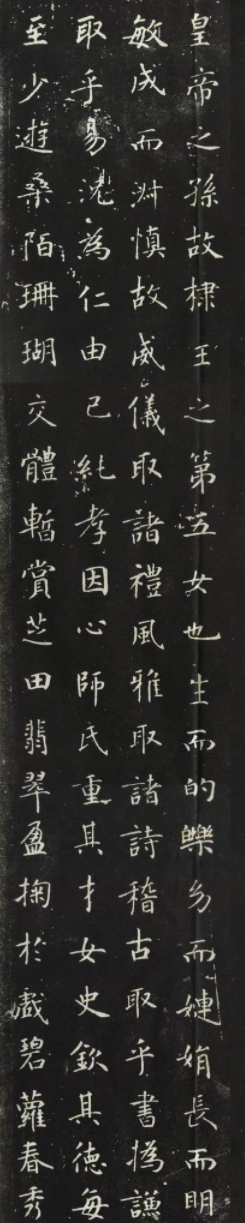 皇帝之孫故棣王之第五女也生而的皪幼而婕娟長而明
敏成而淋慎故威儀取諸禮風雅取諸詩稽古取乎書撝謙
取乎易洗為仁由己純孝因心師氏重其才女史欽其德每
至少遊桑陌珊瑚交體暫賞芝田翡翠盈掬於戲碧蘿春秀